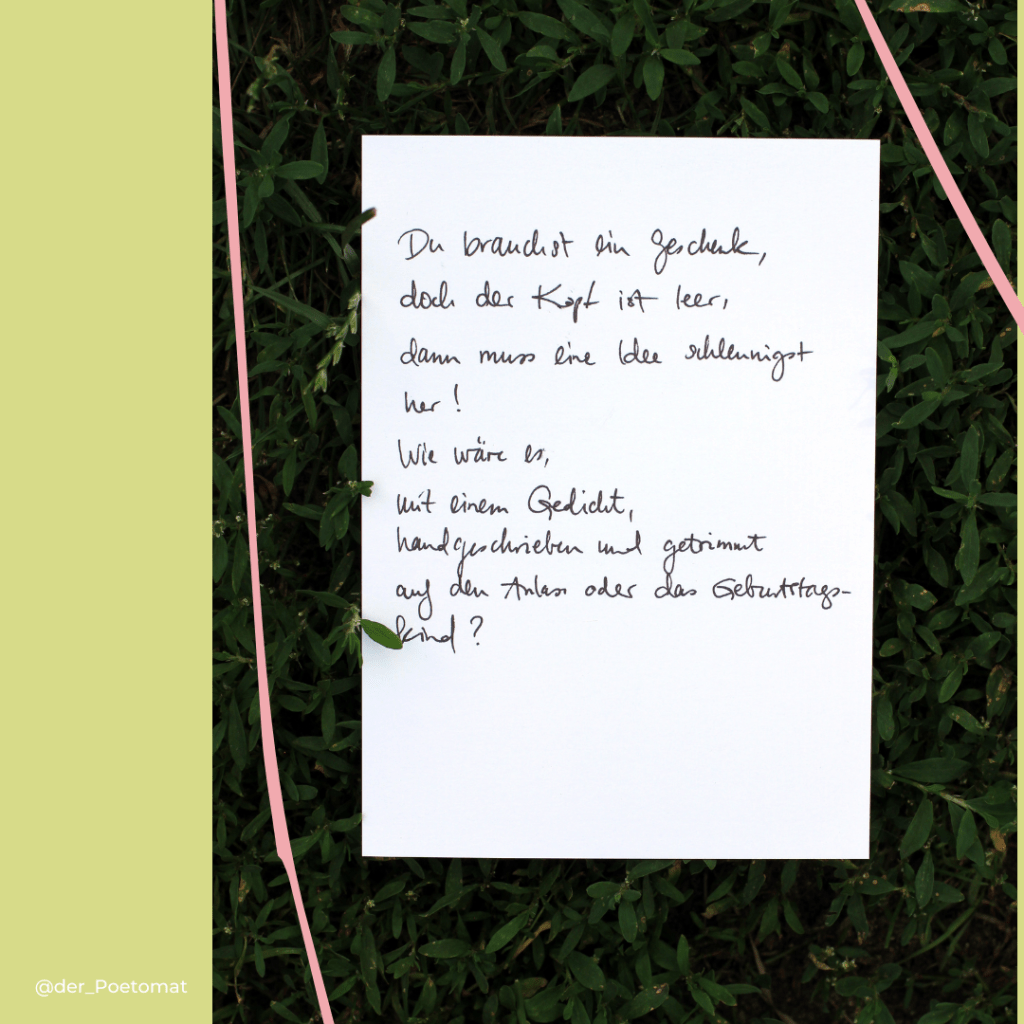 Du brauchst ein Geschenk,
doch der Kopf ist leer,
dann muss eine Idee schleunigst
her!
Wie wäre es,
mit einem Gedicht,
handgeschrieben und getrimmt
auf den Anlass oder das Geburtstags-
kind?
@der_Poetomat